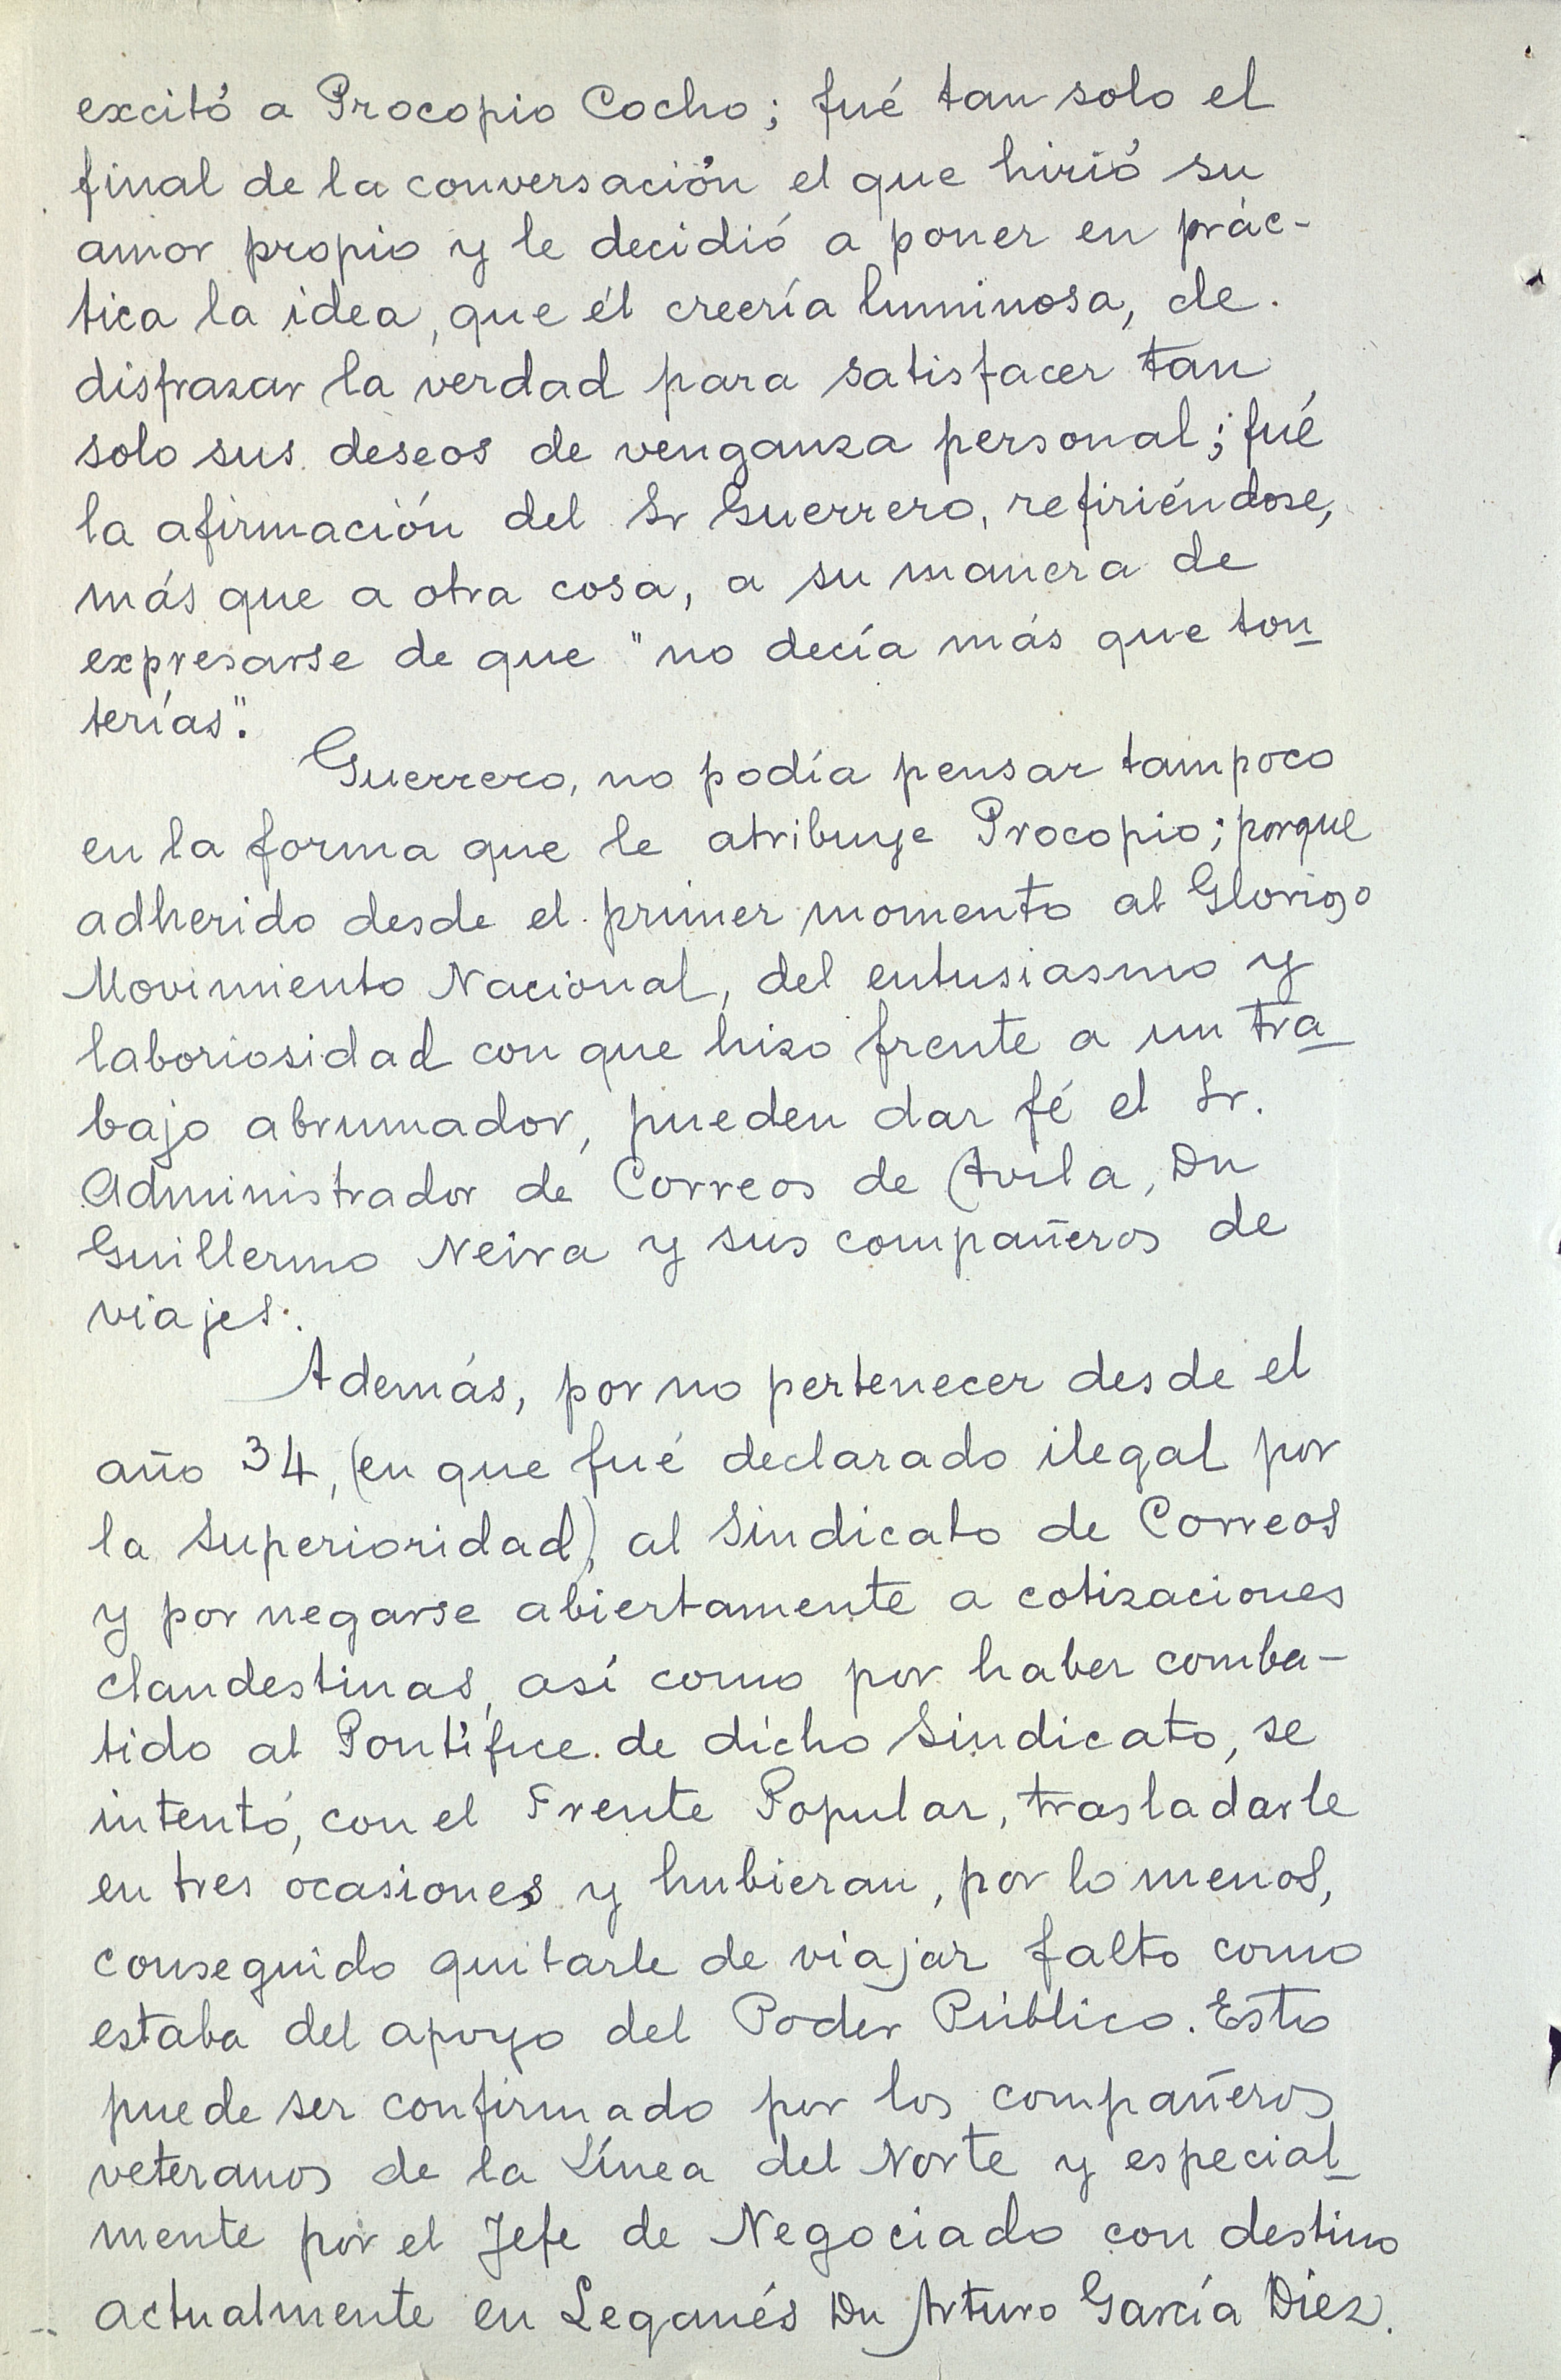 excitó a Procopio Cocho; fué tan solo el
final de la conversación el que hirió su
amor propio y le decidió a poner en prác-
tica la idea, que él creería luminosa, de
disfrazar la verdad para satisfacer tan
solo sus deseos de venganza personal; fué
la afirmación del Sr Guerrero, refiriéndose,
más que a otra cosa, a su manera de
expresarse de que "no decía más que ton_
terías".
Guerrero, no podía pensar tampoco
en la forma que le atribuye Procopio; porque
adherido desde el primer momento al Glorioso
Movimiento Nacional, del entusiasmo y
laboriosidad con que hizo frente a un tra_
bajo abrumador, pueden dar fé el Sr.
Administrador de Correos de Avila, Dn
Guillermo Neira y sus compañeros de
viajes.
Además, por no pertenecer desde el
año 34, (en que fué declarado ilegal por
la Superioridad), al Sindicato de Correos
y por negarse abiertamente a cotizaciones
clandestinas, así como por haber comba-
tido al Pontífice de dicho Sindicato, se
intentó, con el Frente Popular, trasladarle
en tres ocasiones y hubieran, por lo menos,
conseguido quitarle de viajar falto como
estaba del apoyo del Poder Público. Esto
puede ser confirmado por los compañeros
veteranos de la Línea del Norte y especial_
mente por el Jefe de Negociado con destino
actualmente en Leganés Dn Arturo García Diez.